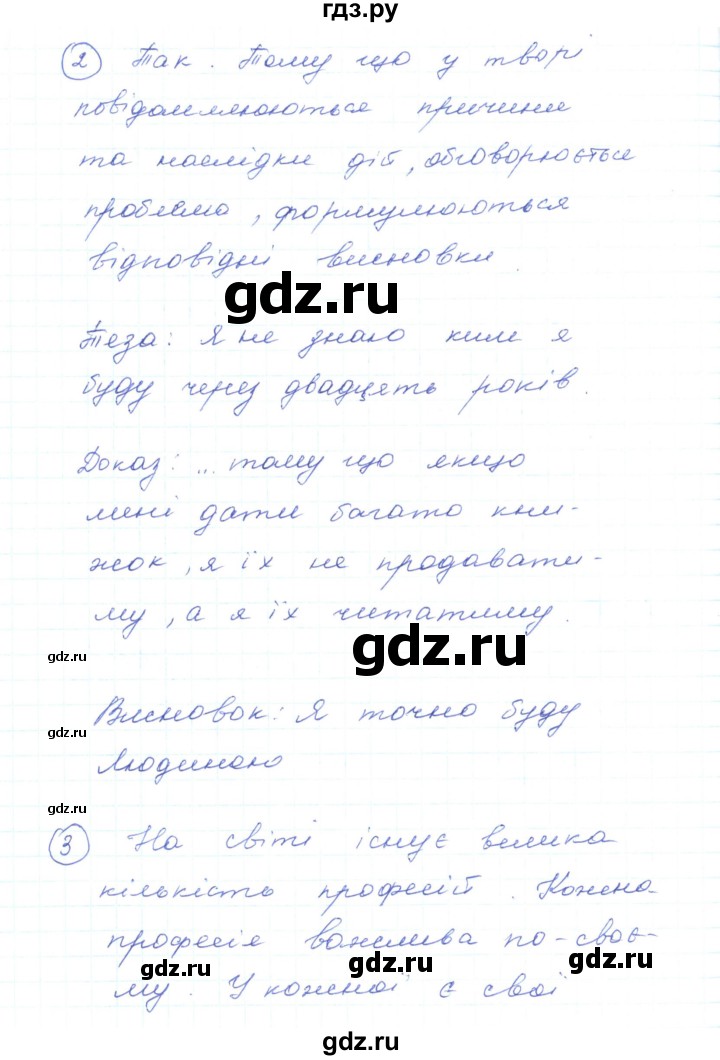 гдз.ру
2 Так. Тому що у творі
повідомлюються причини
та наслідки дій, обговорюється
проблема, формулюються
відповідні висновки.
gdz.ru
Теза: Я не знаю ким я
буду через двадцять років.
Доказ: ... тому що якщо
мені дати багато кни-
жок, я їх не продавати-
му, а я їх читатиму.
gdz.ru
gdz.ru
Висновок: Я точно буду
gdz.ru
людиною
gdz.ru
3 На світі існує велика
кількість професій. Кожна
професія важлива по-своє-
gdz.ru
gdz.ru
gdz.ru
му. У кожної є свої
gdz.ru